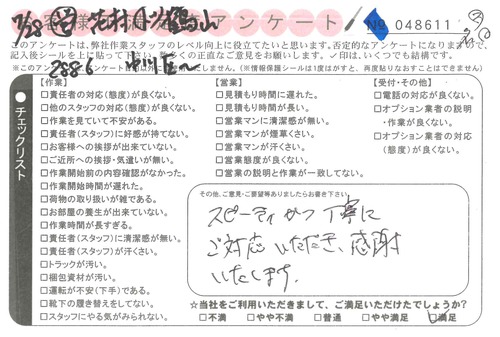 お客様アンケート No 048611
このアンケートは、弊社作業スタッフのレベル向上に役立てたいと思います。否定的なアンケートになりますので、
記入後シールを上に貼って下さい。数多くの正直なご意見をお願いします。✓印は、いくつでも結構です。
2886
チェックリスト
【作業】
□責任者の対応(態度)が良くない。
□他のスタッフの対応(態度)が良くない。
□作業を見ていて不安がある。
□責任者(スタッフ)に好感が持てない。
□お客様への挨拶が出来ていない。
□ご近所への挨拶・気遣いが無い。
□作業開始前の内容確認がなかった。
□作業開始時間が遅れた。
□荷物の取り扱いが雑である。
□お部屋の養生が出来ていない。
□作業時間が長すぎる。
□責任者(スタッフ)に清潔感が無い。
□責任者(スタッフ)が汗くさい。
□トラックが汚い。
□梱包資材が汚い。
□運転が不安(下手)である。
□靴下の履き替えをしてない。
□スタッフにやる気がみられない。
【営業】
□見積もり時間に遅れた。
□見積もり時間が長い。
□営業マンに清潔感が無い。
□営業マンが煙草くさい。
□営業マンが汗くさい。
□営業態度が良くない。
□営業の説明と作業が一致してない。
【受付・その他】
□電話の対応が良くない。
□オプション業者の説明
・作業が良くない。
□オプション業者の対応
(態度)が良くない。
その他、ご意見・ご要望等ありましたらお書き下さい。
スピーディかつ丁寧に
ご対応いただき、感謝
いたします。
☆当社をご利用いただきまして、ご満足いただけたでしょうか?
□不満 □やや不満 □普通 □やや満足 □満足